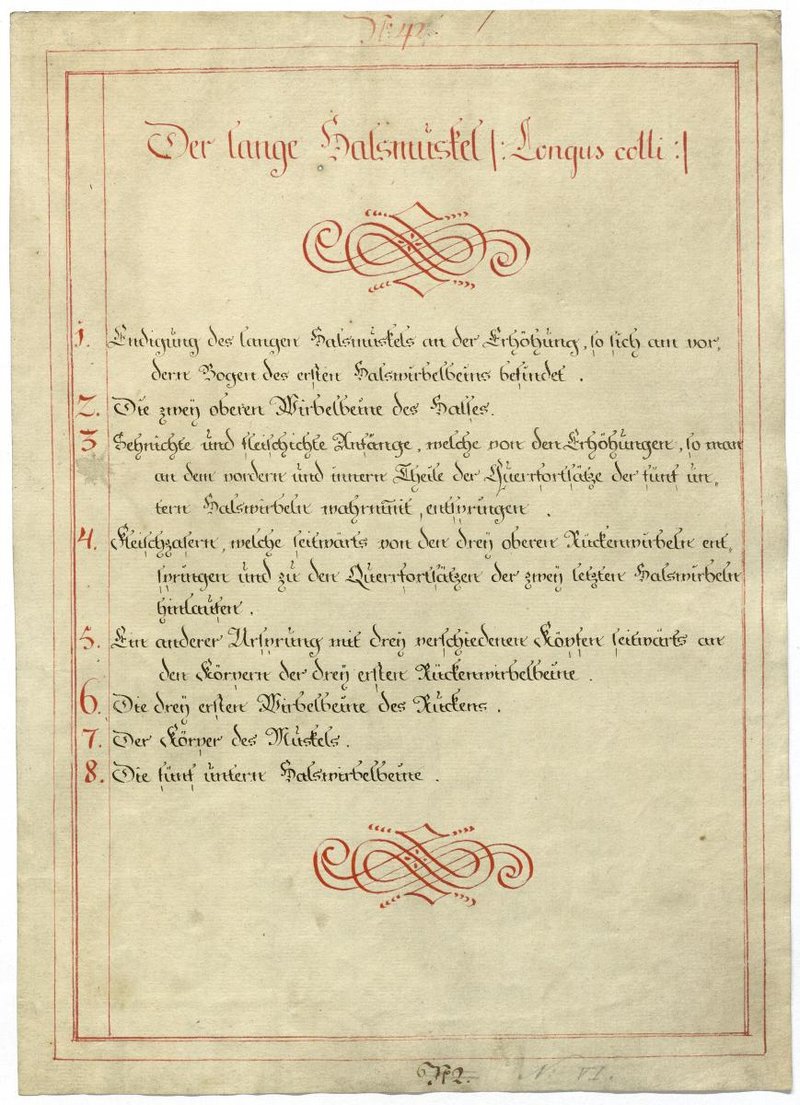 Nro 42.
Der lange Halsmuskel |: Longus colli :|
1. Endigung des langen Halsmuskels an der Erhöhung, so sich am vor,
dern Bogen des ersten Halswirbelbeins befindet.
2. Die zwey oberen Wirbelbeine des Halses.
3 Sehnichte und fleischichte Anfänge, welche von den Erhöhungen, so man
an dem vordern und innern Theile der Querrfortsätze der fünf un,
tern Halswirbeln wahrnim̅t, entspringen.
4. Fleischzasern, welche seitwärts von den drey oberen Rückenwirbeln ent,
springen und zu den Querrfortsätzen der zwey letzten Halswirbeln
hinlaufen.
5. Ein anderer Ursprung mit drey verschiedenen Köpfen seitwärts an
den Körpern der drey ersten Rückenwirbelbeine.
6. Die drey ersten Wirbelbeine des Rückens.
7. Der Körper des Muskels.
8. Die fünf untern Halswirbelbeine.
N. VI.